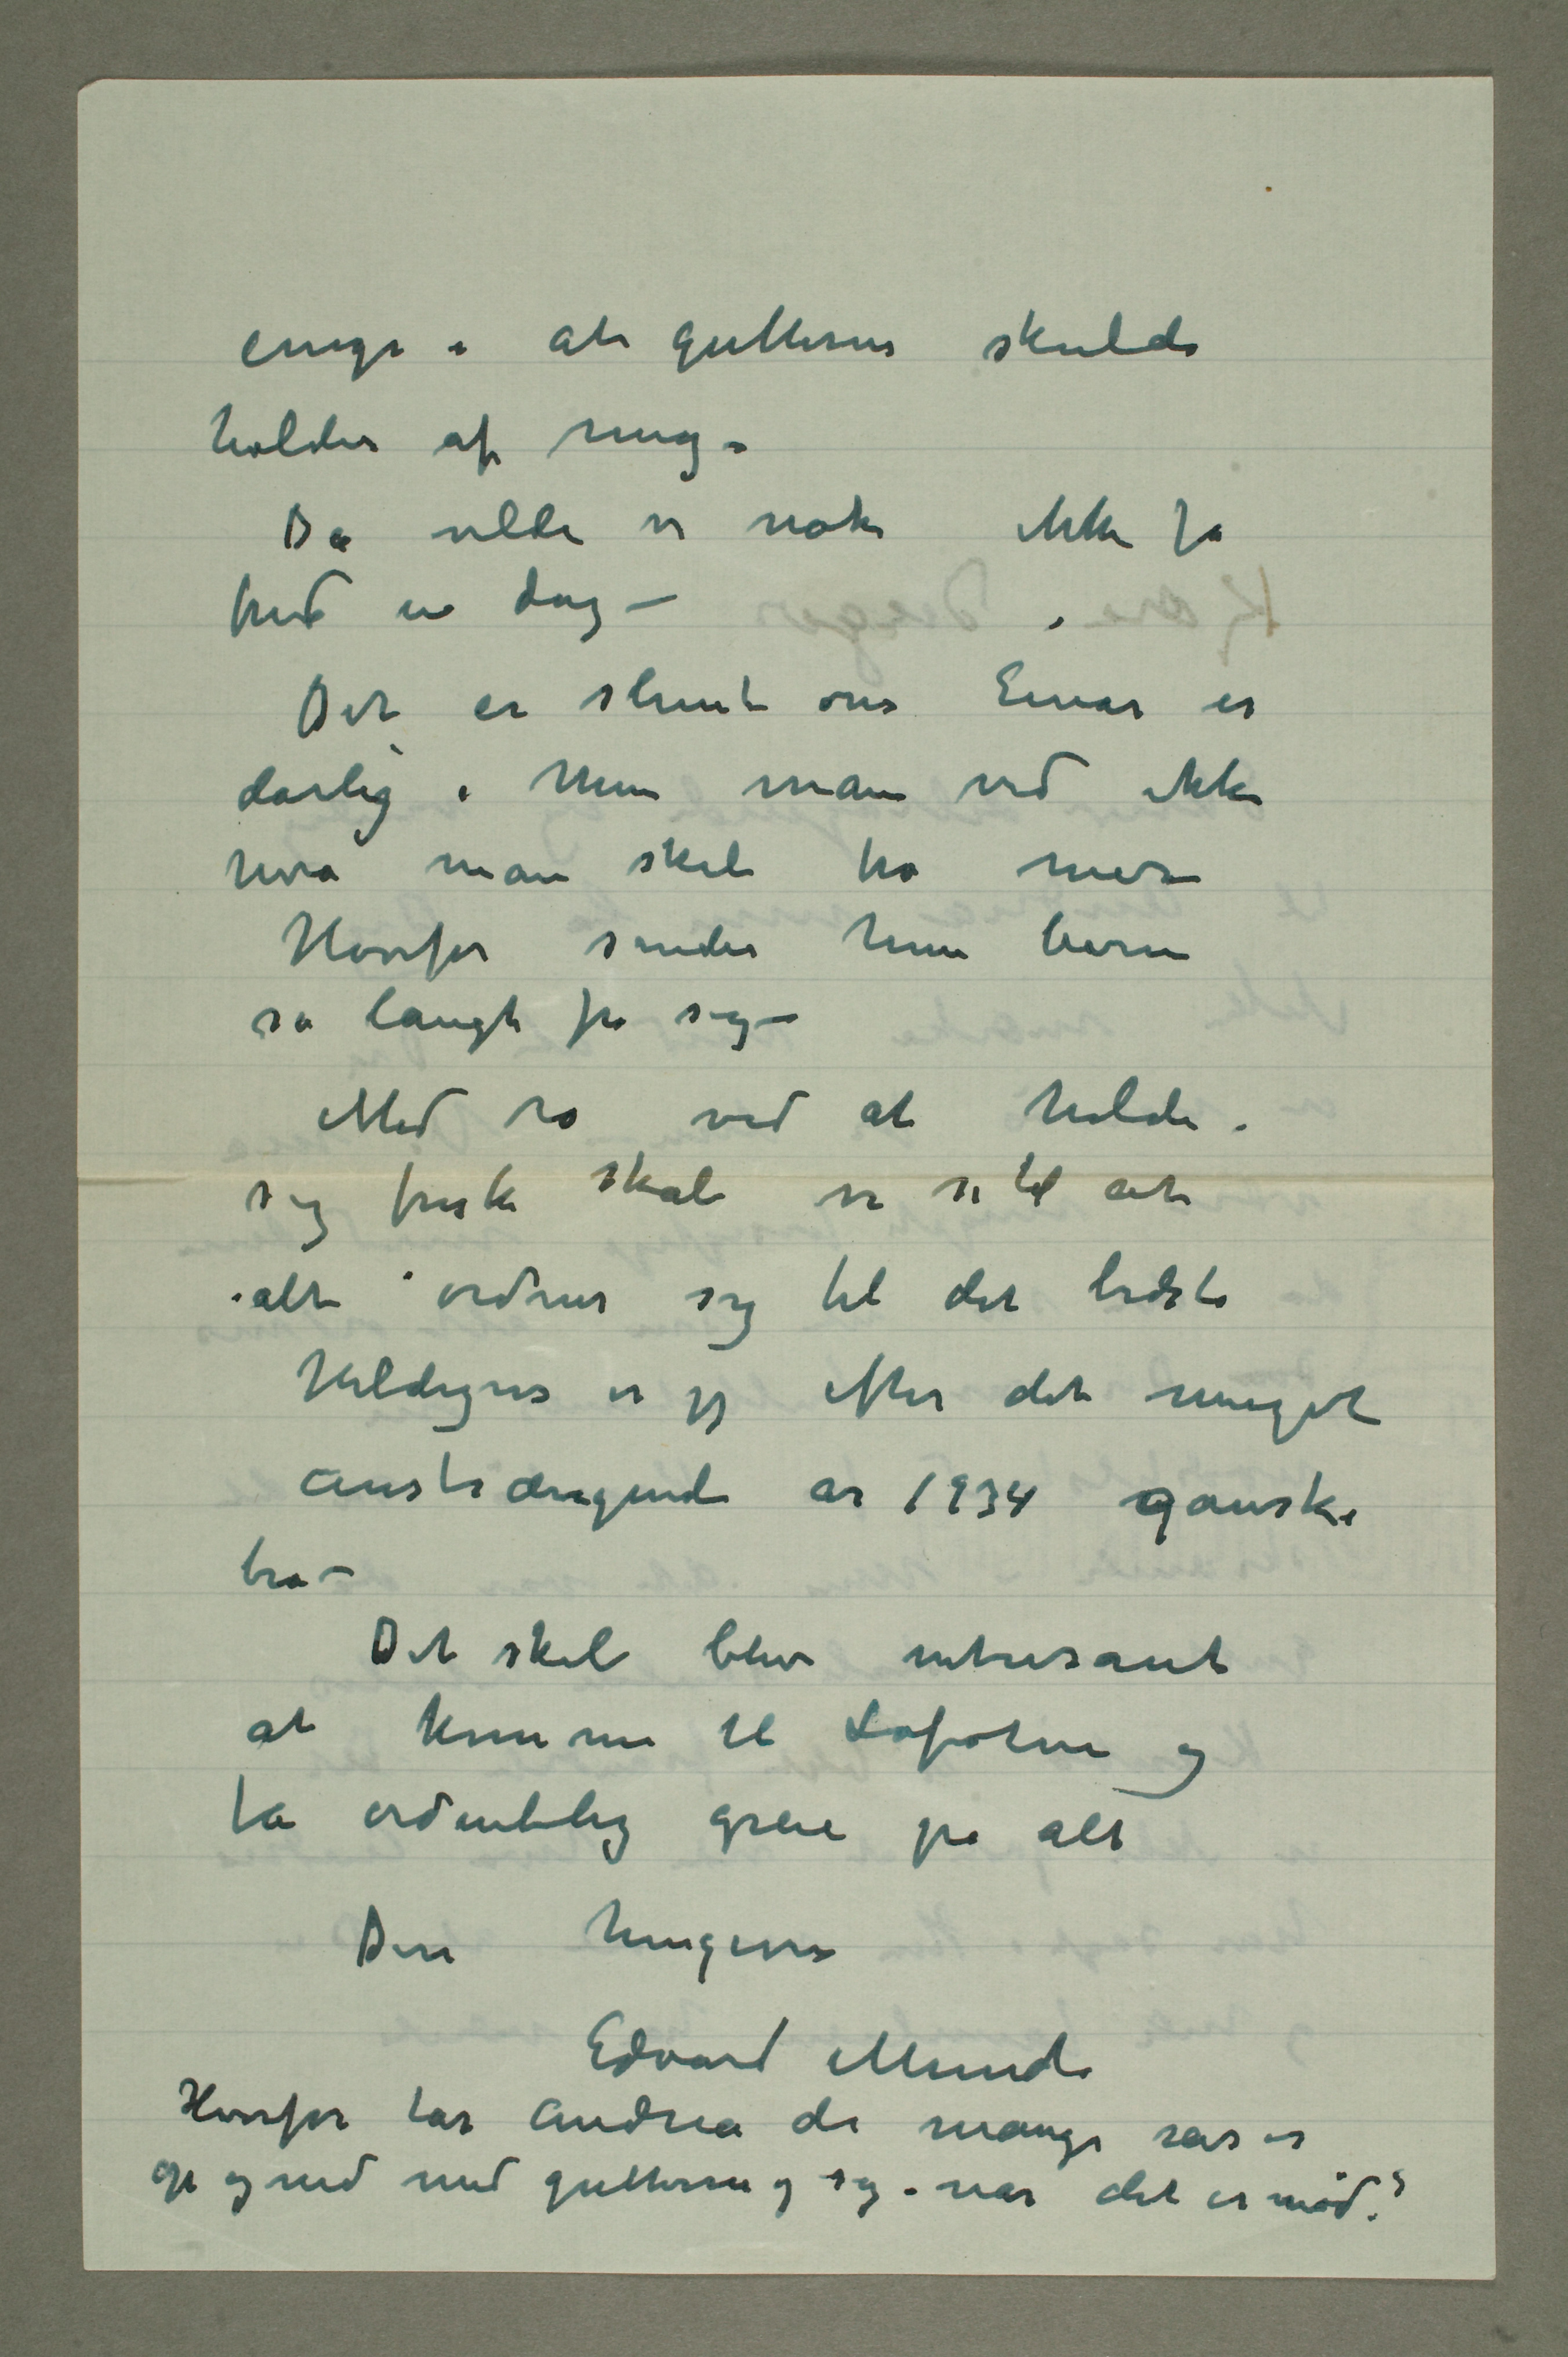 enige i at gutterne skulde
holdes af mig –
Da vilde vi nok ikke få
fred en dag –
Det er slemt om Einar er
dårlig. Men man ved ikke
hva man skal tro mer
Hvorfor sender hun barn
så langt fra sig –
Med ro ved at holde
sig frisk skal vi se til at
alt ordner sig til det bedste
Heldigvis er jeg efter det meget
anstrængende år 1934 ganske
bra –
Det skal blive intresant
at komme til Lofoten og
ta ordentlig greie på alt
Din hengivne
Edvard Munch
Hvorfor tar Andrea de mange reiser
op og ned med gutterne og sig – når det er nød?